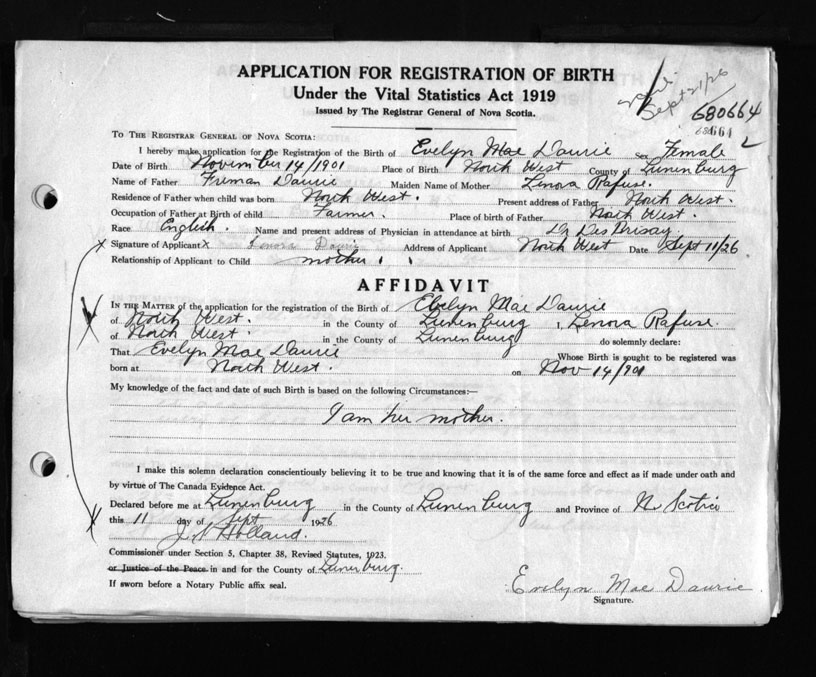 APPLICATION FOR REGISTRATION OF BIRTH
Under the Vital Statistics Act 1919
Issued by The Registrar General of Nova Scotia.
Sept 21/26
680664
TO THE REGISTRAR GENERAL OF NOVA SCOTIA:
I hereby make application for the Registration of the Birth of Evelyn Mae Daurie Sex Female
Date of Birth November 14/1901 Place of Birth North West County of Lunenburg
Name of Father Freman Daurie Maiden Name of Mother Lenora Rafuse.
Residence of Father when child was born North West. Present address of Father North West.
Occupation of Father at Birth of child Farmer. Place of birth of Father North West.
Race English. Name and present address of Physician in attendance at birth Dr DesBrisay
x Signature of Applicant x Lenora Daurie Address of Applicant North West Date Sept 11/26
Relationship of Applicant to Child mother.
AFFIDAVIT
IN THE MATTER of the application for the registration of the Birth of Evelyn Mae Daurie
of North West. in the County of Lunenburg I, Lenora Rafuse.
of North West. in the County of Lunenburg do solemnly declare:
That Evelyn Mae Daurie Whose Birth is sought to be registered was
born at North West. on Nov 14/901
My knowledge of the fact and date of such Birth is based on the following Circumstances:—
I am her mother.
I make this solemn declaration conscientiously believing it to be true and knowing that it is of the same force and effect as if made under oath and
by virtue of The Canada Evidence Act.
Declared before me at Lunenburg in the County of Lunenburg and Province of N. Scotia
this 11 day of Sept 1926
Holland.
Commissioner under Section 5, Chapter 38, Revised Statutes, 1923.
or Justice of the Peace in and for the County of Lunenburg.
If sworn before a Notary Public affix seal.
Evelyn Mae Daurie
Signature.